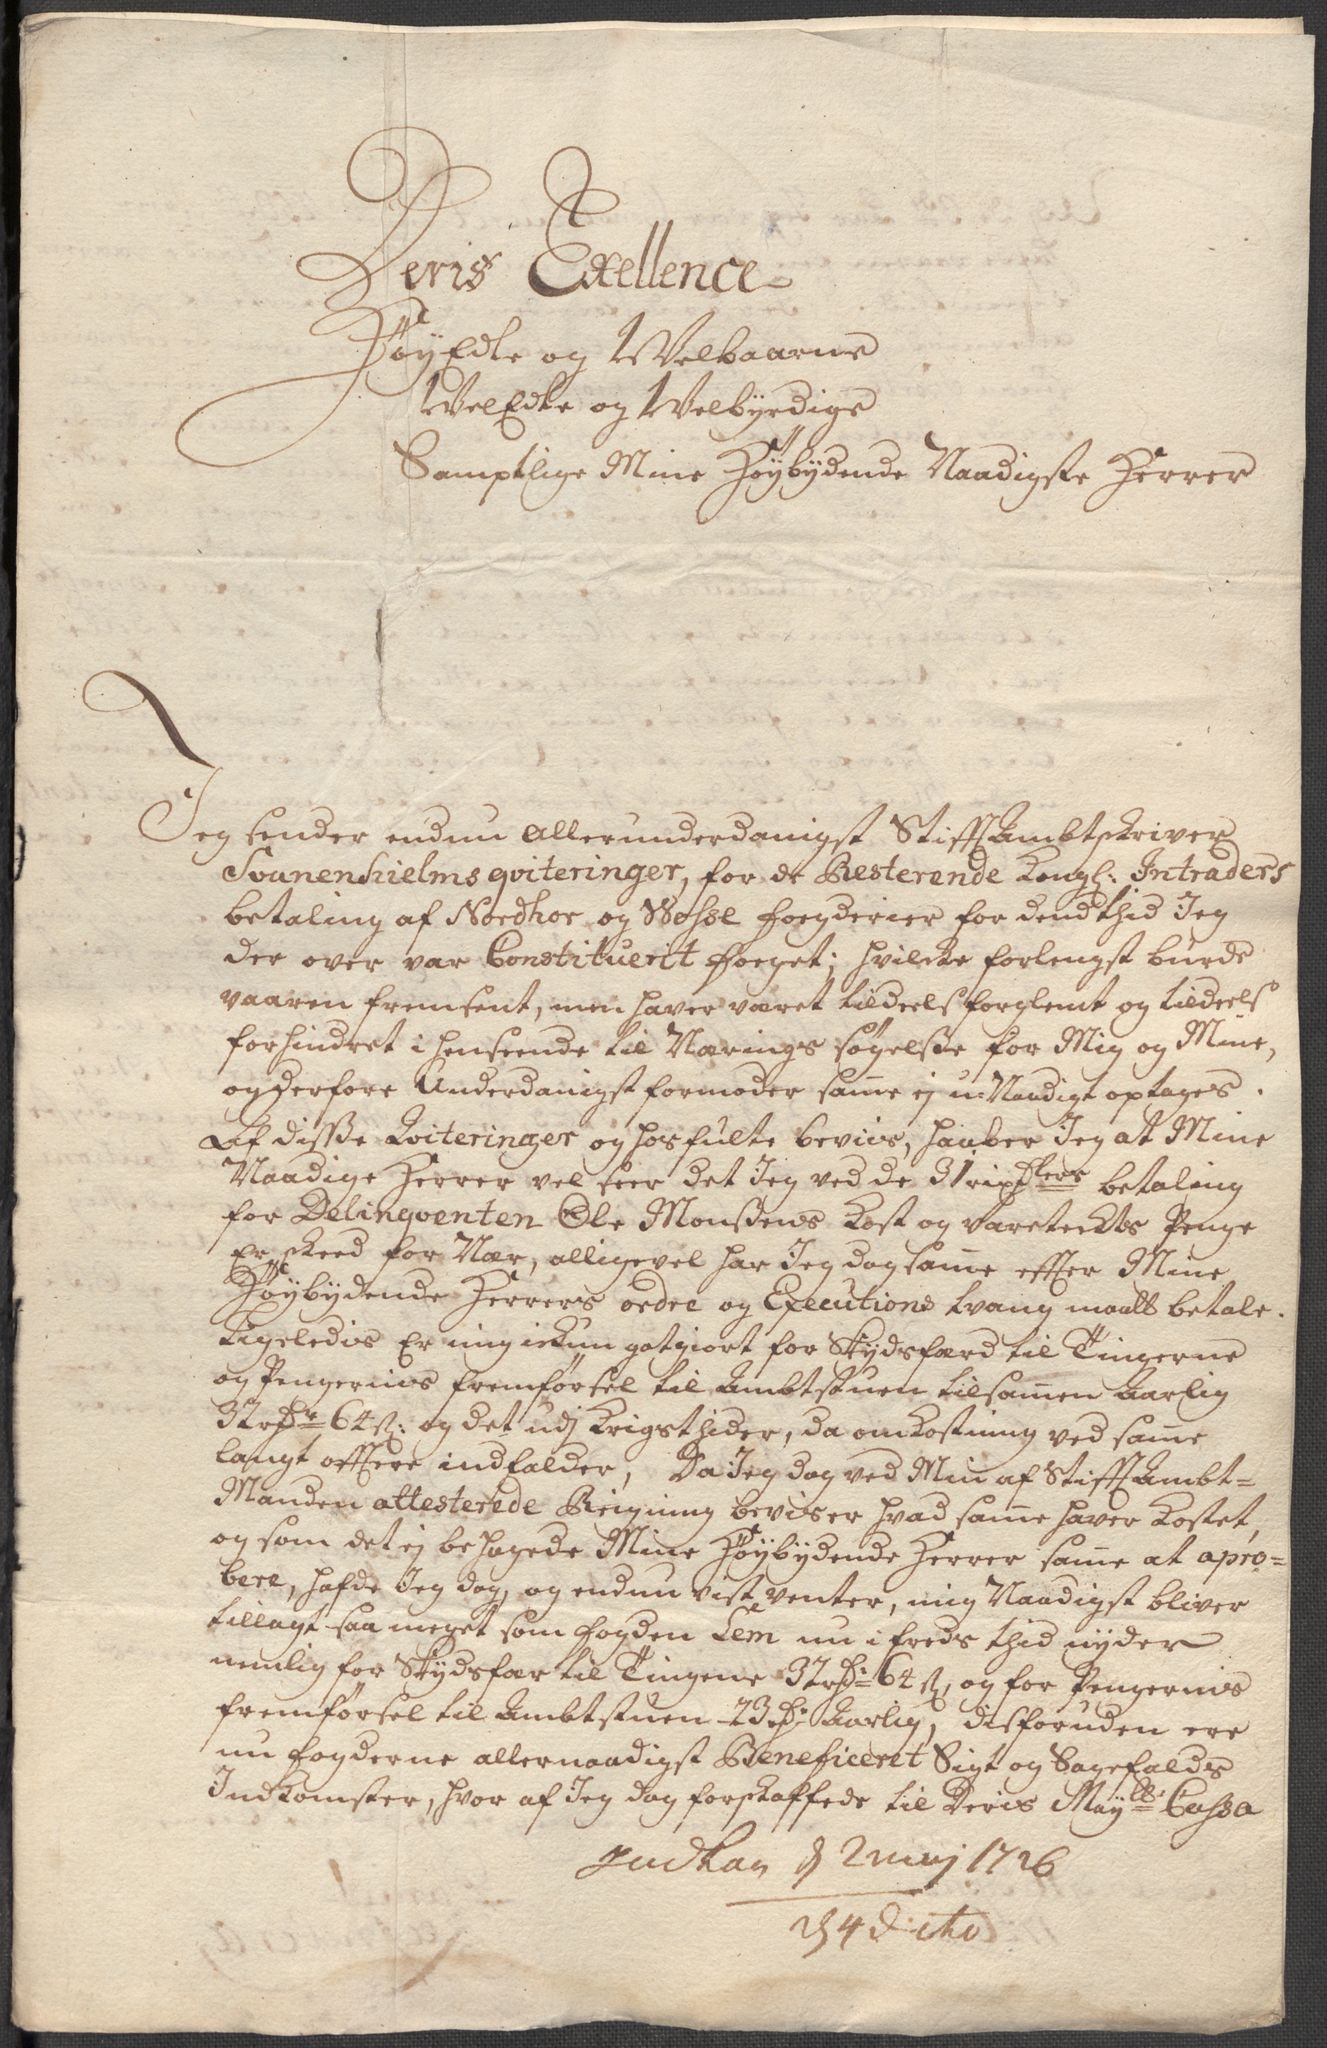 Deris Exellence
HøyEdle og Welbaarne
WelEdle og Welbÿrdige
Samptlige Mine Høÿbÿdende Naadigste Herrer
Jeg sender endnu Allerunderdanigst StifftsAmbtskriver
Svanenhielms qviteringer, for de Resterende Kongl: Intraders
betaling af Nordhor og Wosse fogderier for dend thid Jeg
der over var Constituerit foeget; hvilcke forlengst burde
vaaren fremsent, men haver været tildeels forglemt og tildeels
forhindret i henseende til Nærings søgelse for Mig og Mine,
og derfore Underdanigst formoder same ej u-Naadigt optages.
Af disse Qviteringer og hosfulte beviis, haaber Jeg at Mine
Naadige Herrer vel seer det Jeg ved de 31 rixdlers betaling
for Delinqventen Ole Monssens Kost og Vareteckts Penge
Er skeed for Nær, alligevel har Jeg dog same effter Mine
Høÿbÿdende Herrers ordre og Executions tvang maatt betale.
Ligeledis Er mig ickun gotgiort for Skydsfærd til Tingerne
og Pengernis fremførsel til Ambtstuen tilsamen Aarlig
32 rdr 64 s: og det udj Krigs thider, da omkostning ved same
langt offtere indfalder, Da Jeg dog ved Min af StifftAmbt-
Manden attesterede Reigning beviser hvad same haver kostet,
og som det ej behagede Mine Høÿbÿdende Herrer same at apro-
bere, hafde Jeg dog, og endnu vist venter, mig Naadigst bliver
tillagt saa meget som fogden Lem nu i freds thid nÿder
nemlig for Skydsfær til Tingene 32 rdr 64 s, og for Pengernis
fremførsel til Ambtstuen 23 rdr Aarlig, disforuden ere
nu fogderne allernaadigst Beneficeret Sigt og Sagefalds
Indkomster, hvor af Jeg dog forskaffede til Deris Maÿtts Cassa
d 2 maj 1726
d 4 dito